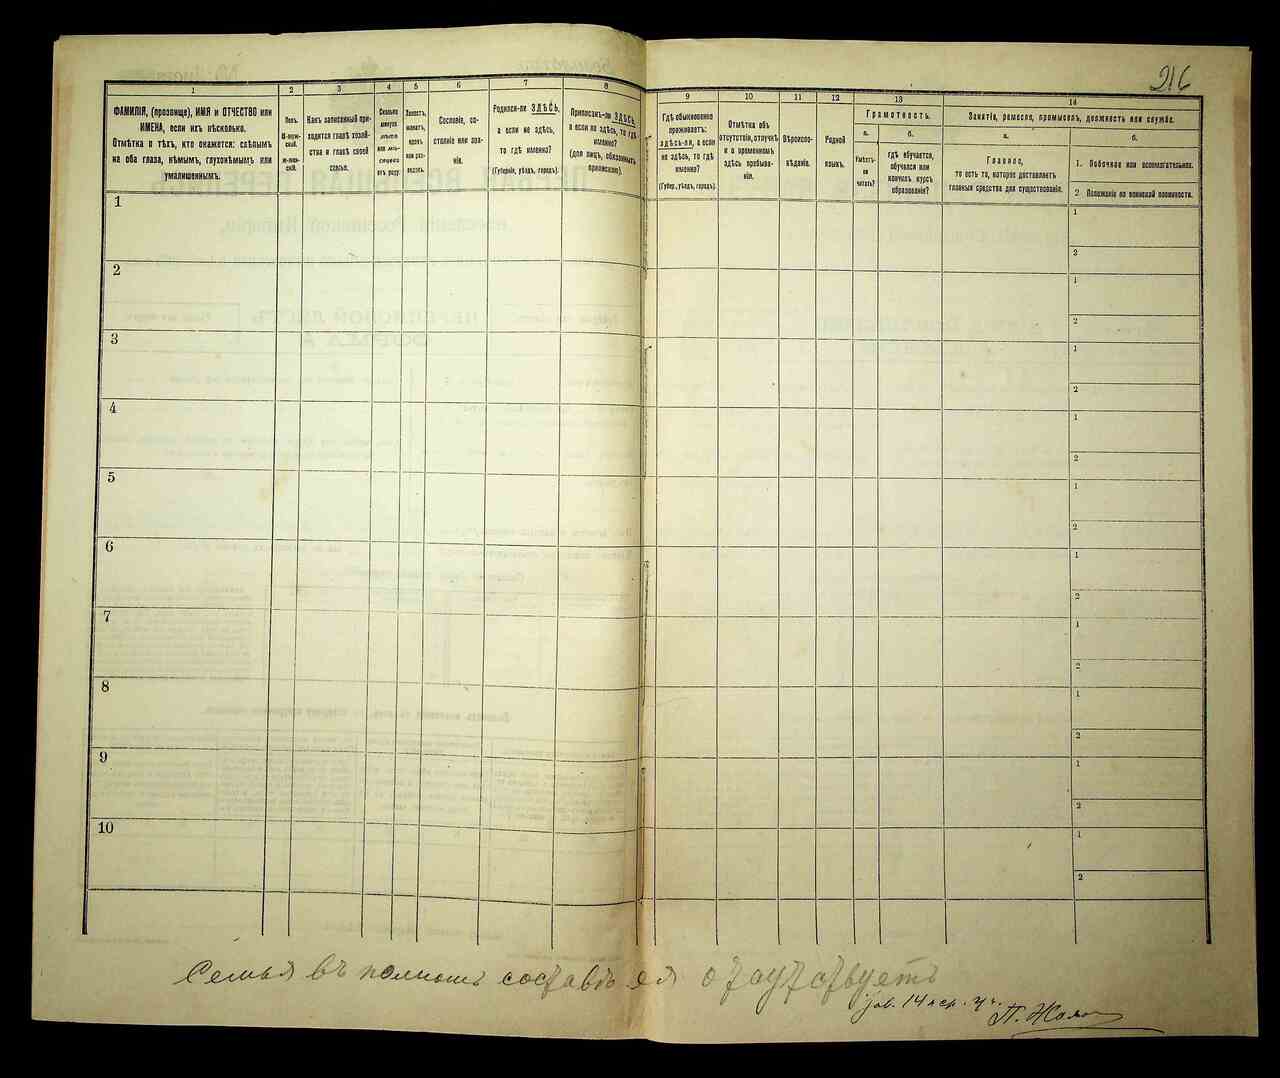 216
1
2
3
4
5
6
7
8
9
10
11
12
13
14
ФАМИЛІЯ, (прозвище), ИМЯ и ОТЧЕСТВО или
ИМЕНА, если ихъ нѣсколько.
Отмѣтка о тѣхъ, кто окажется: слѣпымъ
на оба глаза, нѣмымъ, глухонѣмымъ или
умалишеннымъ.
Полъ.
М-муж-
ской.
Ж-жен-
скій.
Какъ записанный при-
ходится главѣ хозяй-
ства и главѣ своей
семьи.
Сколько
минуло
лѣтъ
или мѣ-
сяцевъ
отъ роду.
Холостъ,
женатъ,
вдовъ
или раз-
веденъ.
Сословіе, со-
стояніе или зва-
ніе.
Родился-ли ЗДѢСЬ,
а если не здѣсь,
то гдѣ именно?
(Губернія, уѣздъ, городъ).
Приписанъ-ли ЗДѢСЬ,
а если не здѣсь, то гдѣ
именно?
(для лицъ, обязанныхъ
припискою).
Гдѣ обыкновенно
проживаетъ:
здѣсь-ли, а если
не здѣсь, то гдѣ
именно?
(Губер., уѣздъ, городъ).
Отмѣтка объ
отсутствіи, отлучкѣ
и о временномъ
здѣсь пребыва-
ніи.
Вѣроиспо-
вѣданіе.
Родной
языкъ.
Грамотность.
а.
Умѣетъ-
ли
читать?
б.
гдѣ обучается,
обучался или
кончилъ курсъ
образованія?
Занятіе, ремесло, промыселъ, должность или служба.
а.
Главное,
то есть то, которое доставляетъ
главныя средства для существованія.
б.
1. Побочное или вспомогательное.
2 Положеніе по воинской повинности.
1
1
2
2
1
2
3
1
2
4
1
2
5
1
2
6
1
2
7
1
2
8
1
2
9
1
2
10
1
2
Семья въ полномъ составѣ ея отсутствуетъ